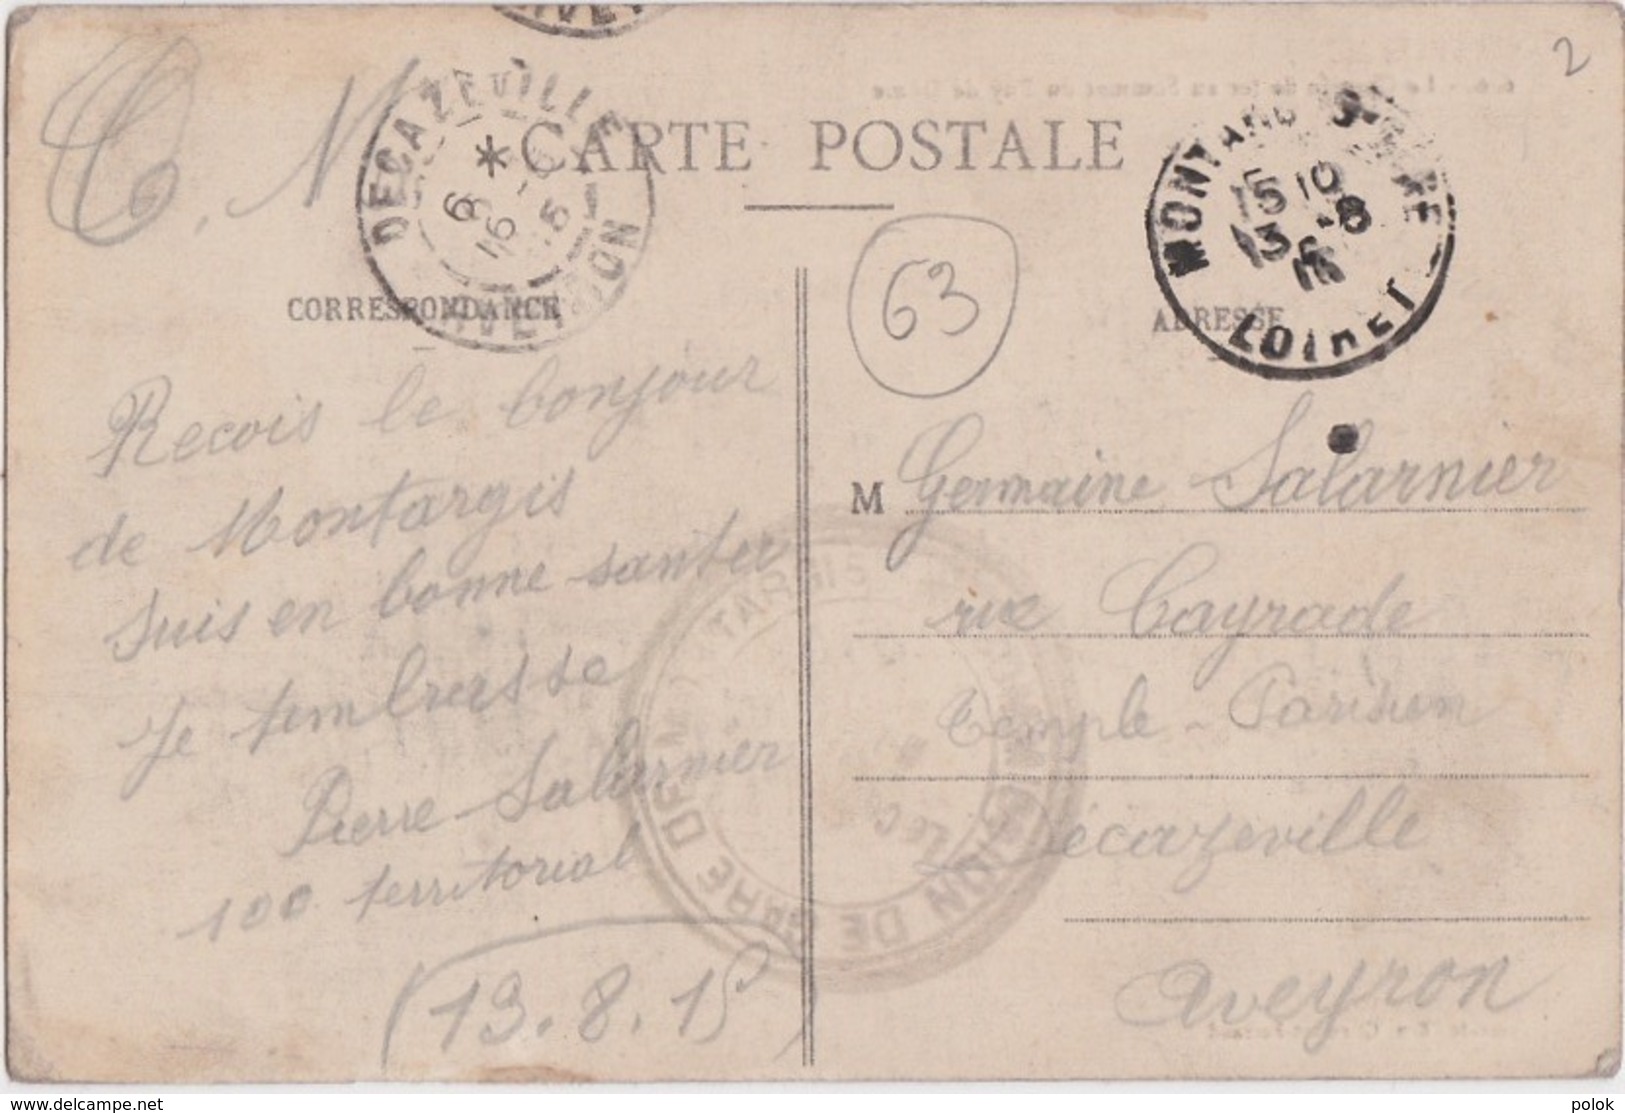 2
CARTE POSTALE
C. N
DECAZEVILLE
*
6
16 - 8
AVEYRON
MONTARGIS
15 10
13 - 8
LOIRET
63
CORRESPONDANCE
ADRESSE
Recois le bonjour
de Montargis
suis en bonne santer
Je tembrasse
Pierre Salarnier
100 territorial
(13.8.15)
M Germaine Salarnier
rue Cayrade
temple - Parisien
Décazeville
aveyron
delcampe.net
polok